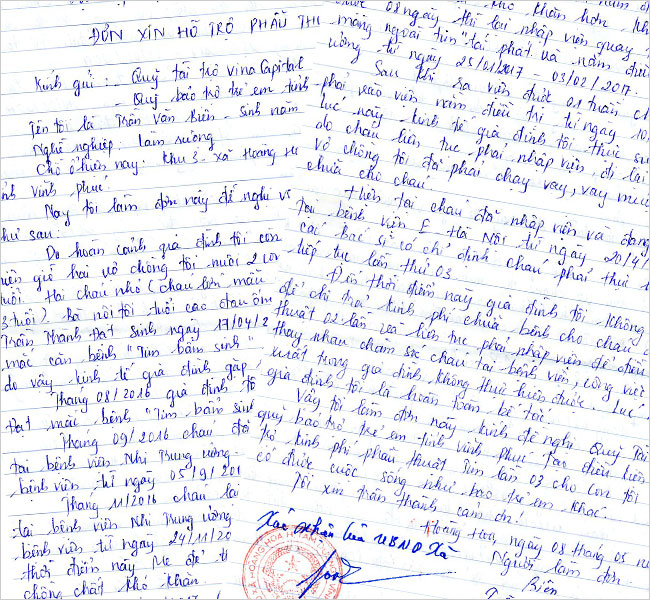 ĐƠN XIN HỖ TRỢ PHẪU THU
Kính gửi: - Quỹ tài trợ vinaCapital
- Quỹ bảo trợ trẻ em tỉnh
Tên tôi là Trần Văn Biên - Sinh năm
Nghề nghiệp: làm ruộng
Chỗ ở hiện nay: Khu 3 - xã Hoàng H
nh Vĩnh Phúc.
Nay tôi làm đơn này đề nghị v
như sau:
Do hoàn cảnh gia đình tôi
hiện giờ hai vợ chồng tôi nuôi 2 con
tuổi. Hai cháu nhỏ (cháu lớn mẫu
3 tuổi) Bà nội tôi tuổi cao đau ốm
Trần Thành Đạt sinh ngày 17/04/2
mắc căn bệnh "Tim bẩm sinh"
do vậy kinh tế gia đình gặp
Tháng 08/2016 gia đình tô
Đạt mắc bệnh "Tim bẩm sinh
Tháng 09/2016 cháu đã
tại bệnh viện Nhi Trung ương
bệnh viện từ ngày 05/9/201
Tháng 11/2016 cháu lại
tại bệnh viện Nhi Trung ương
bệnh viện từ ngày 24/11/20
thời điểm này Mẹ đẻ t
chồng chất khó khăn
08 ngày thì lại nhập viện quay
màng ngoài tim "tái phát và nằm điều
ương từ ngày 25/01/2017 - 03/02/2017.
Sau khi ra viện được 01 tuần ch
phải vào viện nằm điều trị từ ngày 10
Lúc này kinh tế gia đình tôi thực sự
do cháu liên tục phải nhập viện, đi lại
vợ chồng tôi đã phải chạy vạy, vay mượ
chữa cho cháu.
Hiện tại cháu đã nhập viện và đang
tại bệnh viện E Hà Nội từ ngày 20/4/
các bác sĩ có chỉ định cháu phải
tiếp tục lần thứ 03.
Đến thời điểm này gia đình tôi không
để chi trả kinh phí chữa bệnh cho cháu
thuật 02 lần và liên tục phải nhập viện để điều
thay nhau chăm sóc cháu tại bệnh viện, công việc
xuất trong gia đình không thực hiện được. Lúc
gia đình tôi là hoàn toàn bế tắc.
Vậy tôi làm đơn này kính đề nghị Quỹ Tài
quỹ bảo trợ trẻ em tỉnh Vĩnh Phúc tạo điều kiện
trợ kinh phí phẫu thuật tim lần 03 cho con tôi
có được cuộc sống như bao trẻ em khác.
Tôi xin trân thành cảm ơn!
Xác nhận của UBND Xã
Hoàng Hoa, ngày 08 tháng 05 n
Người làm đơn
Biên